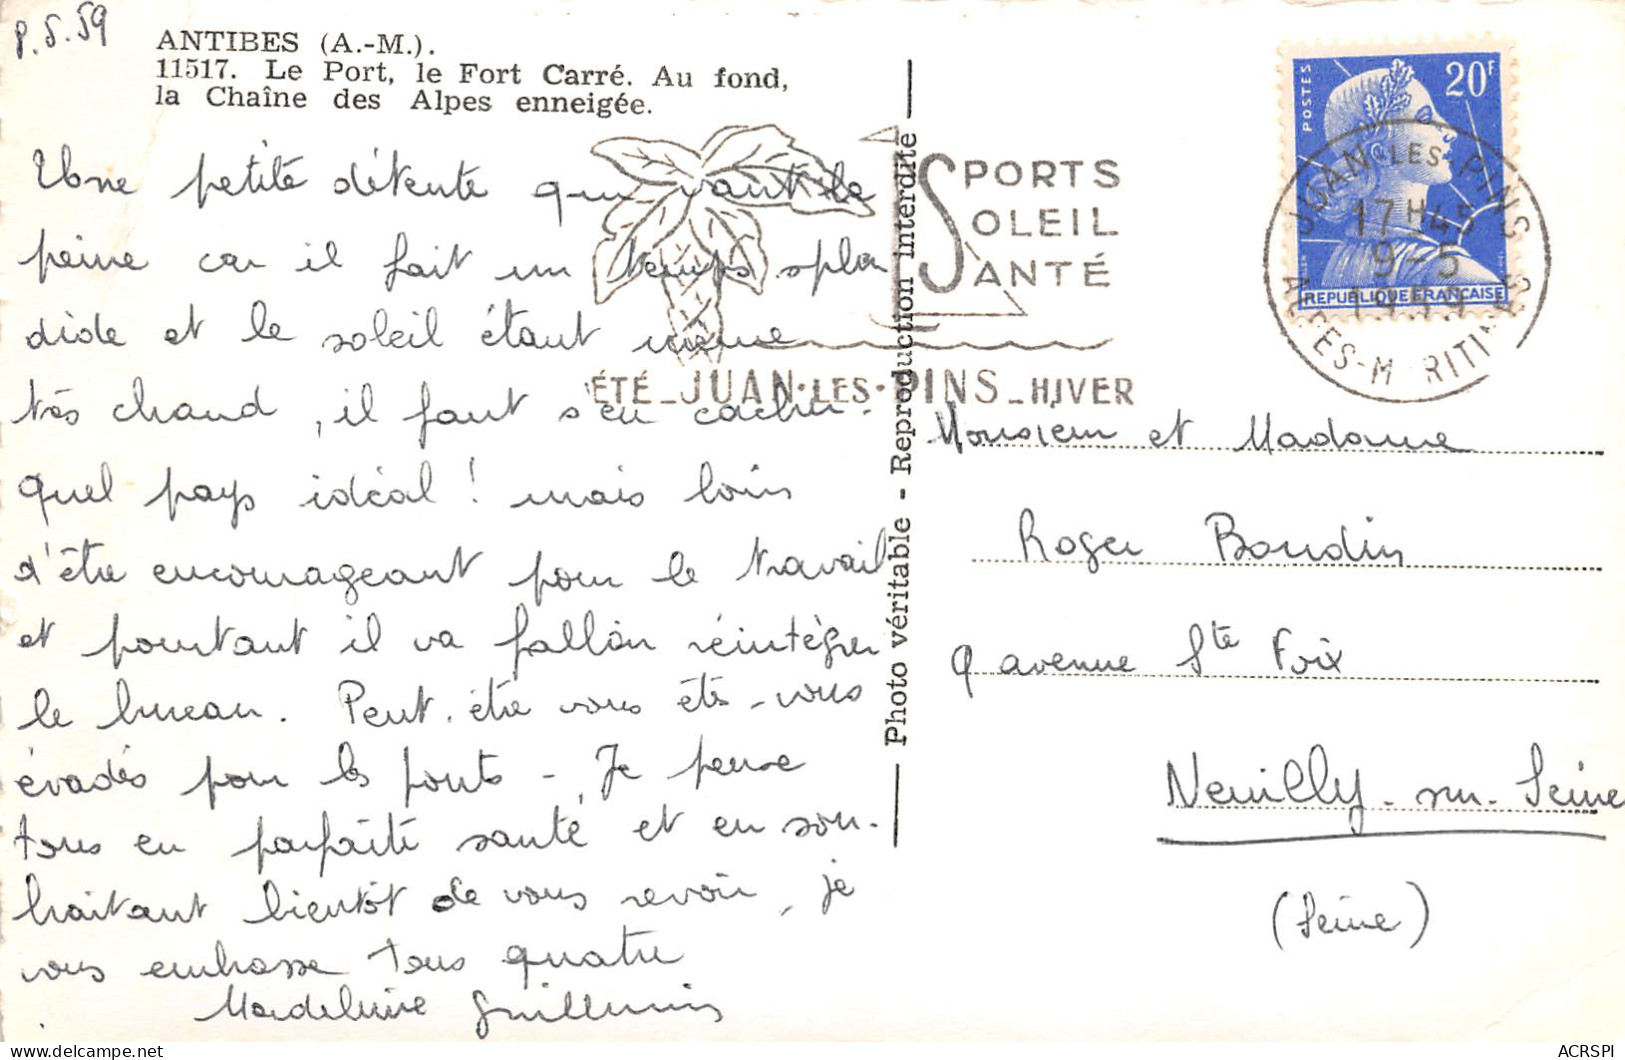 8.5.59
ANTIBES (A.-M.).
11517. Le Port, le Fort Carré. Au fond,
la Chaîne des Alpes enneigée.
Une petite détente qui vaut la
peine car il fait un temps splen
dide et le soleil étant même
très chaud, il faut s'en cacher.
quel pays idéal ! mais loin
d'être encourageant pour le travail
et pourtant il va falloir réintégrer
le bureau. Peut-être vous êtes-vous
évadés pour les ponts - Je pense
tous en parfaite santé et en sou-
haitant bientôt de vous revoir, je
vous embrasse tous quatre
Madeleine Guillemin
Photo véritable - Reproduction Interdite
SPORTS
SOLEIL
SANTÉ
ÉTÉ _ JUAN-LES-PINS _ HIVER
POSTES
20F
REPUBLIQUE FRANCAISE
JUAN-LES-PINS
17H45
9-5
1959
ALPES-MARITIMES
Monsieur et Madame
Roger Boudin
9 avenue Ste Foix
Neuilly-sur-Seine
(Seine)
ACRSPI